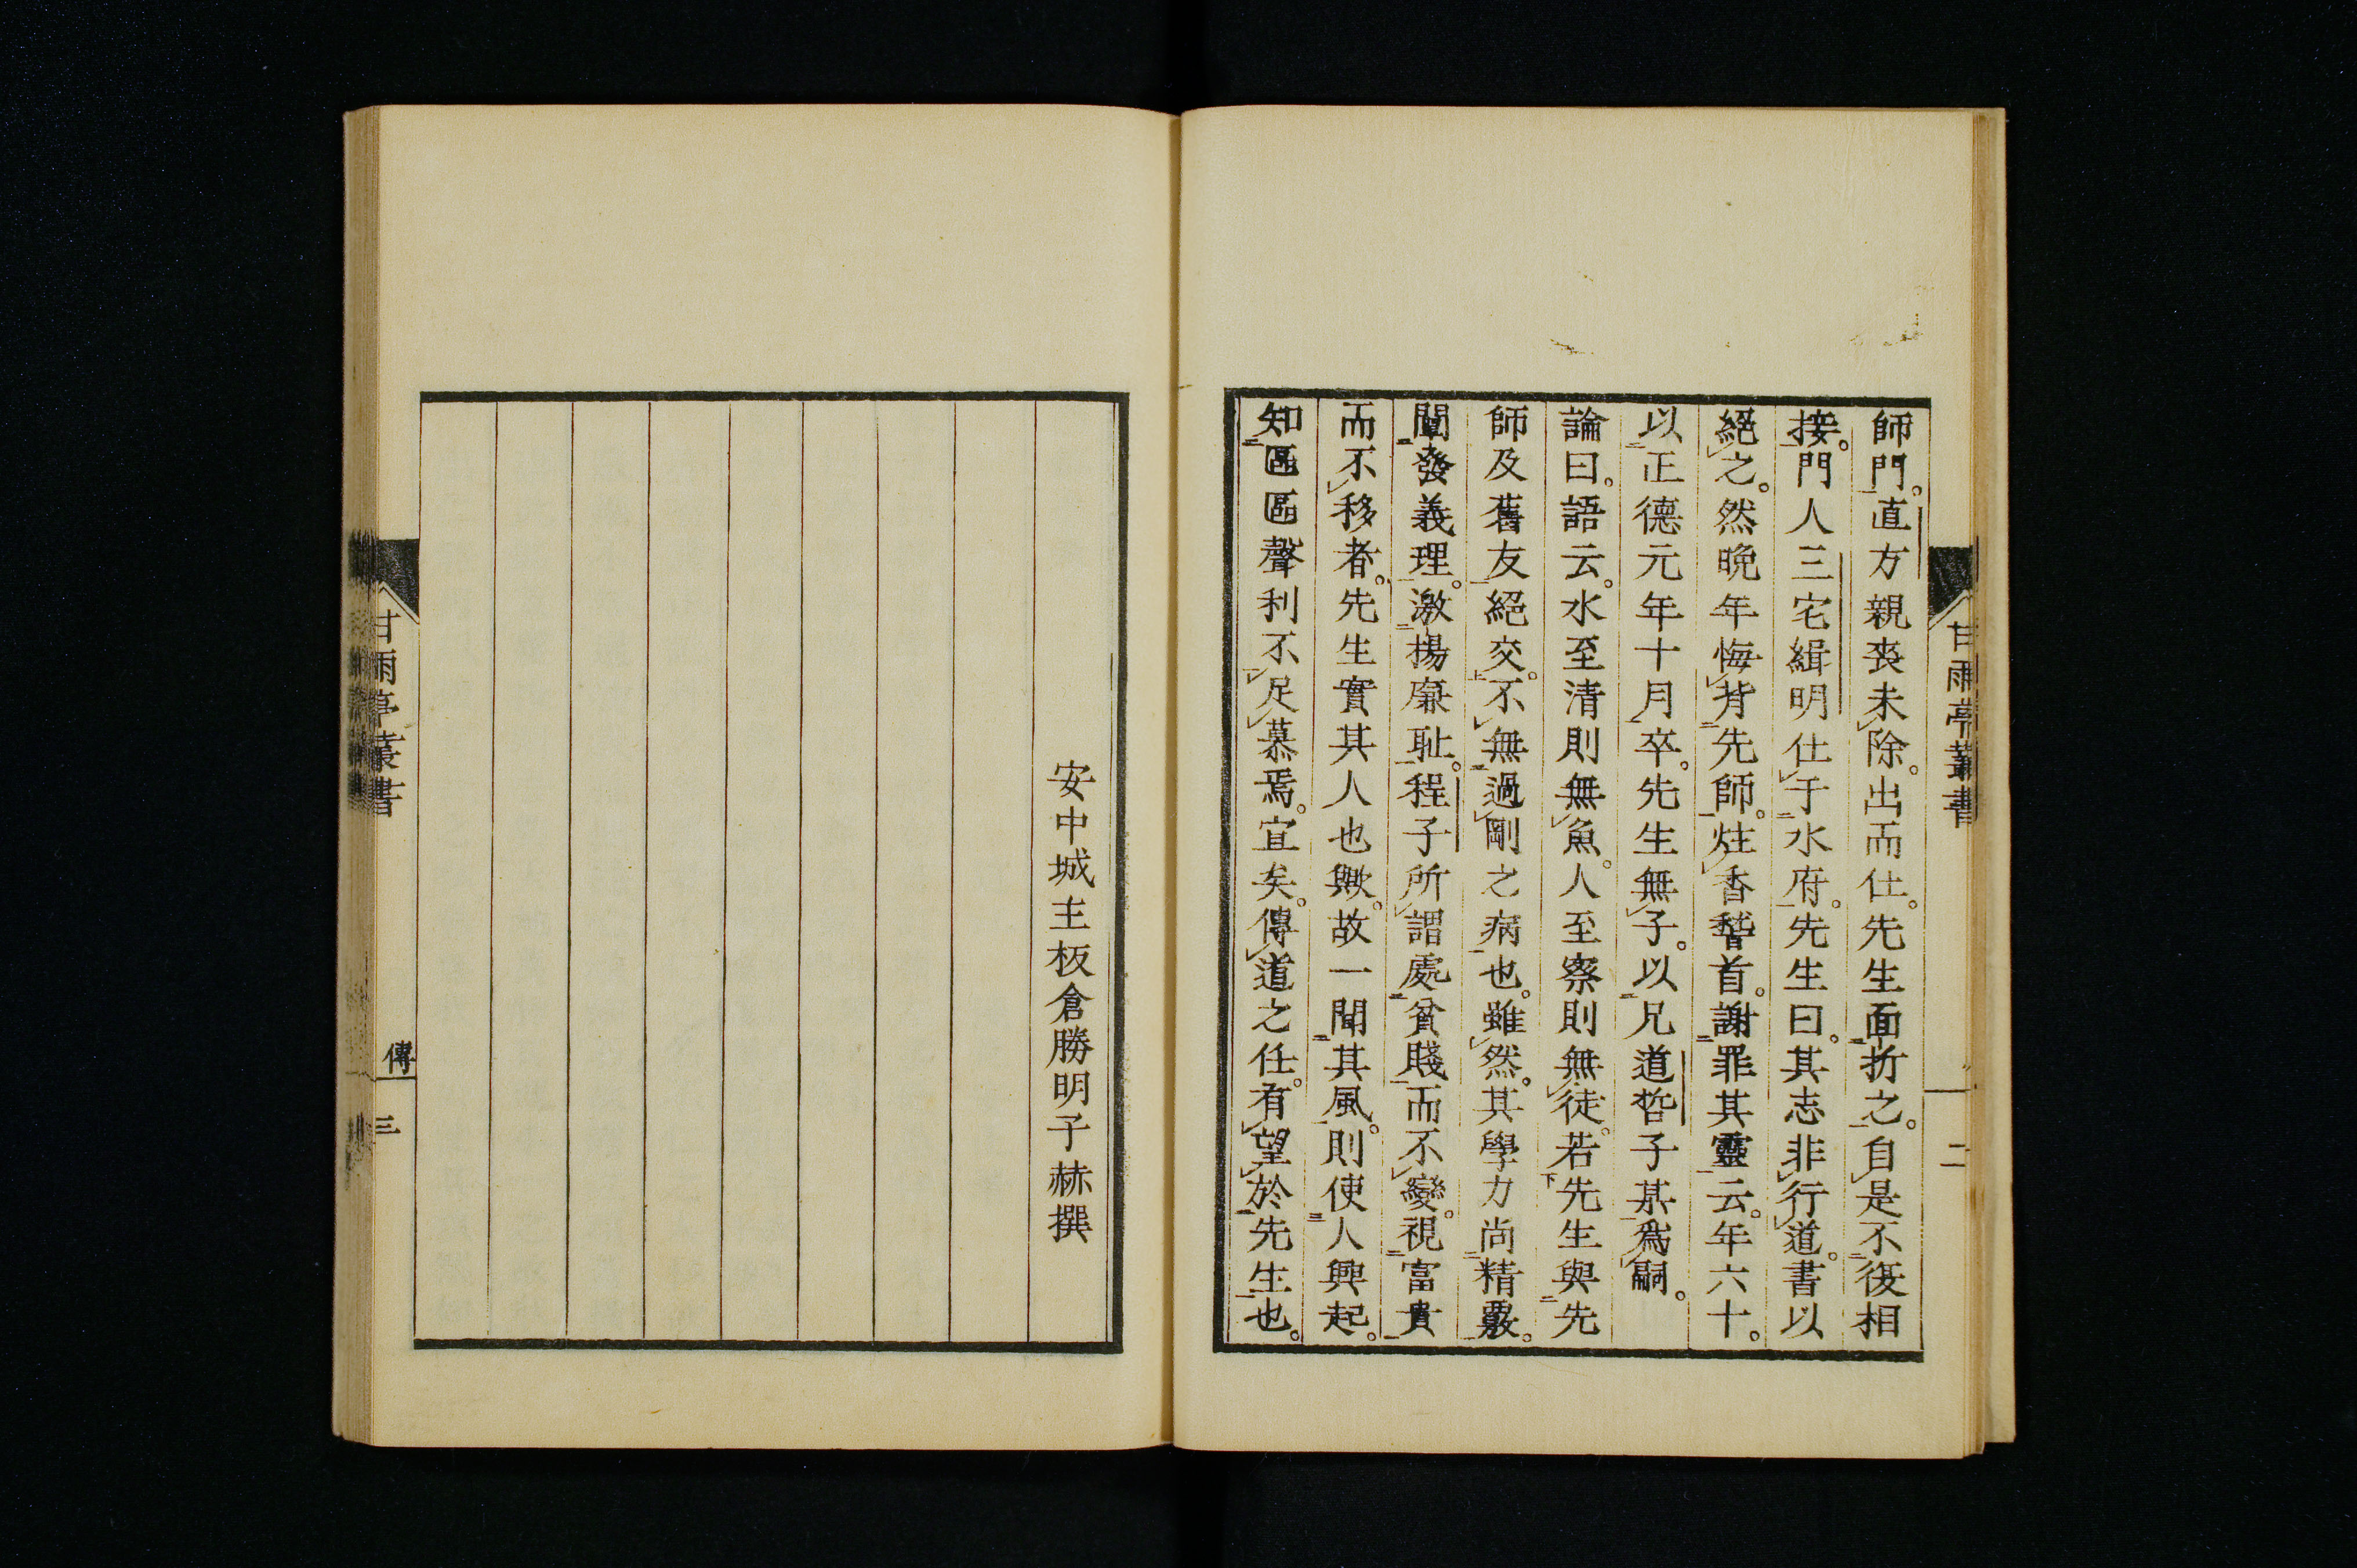 甘雨亭叢書
二
師門。直方親喪未除。出而仕。先生面折之。自是不復相
接。門人三宅緝明仕于水府。先生曰。其志非行道。書以
絕之。然晚年悔背先師。炷香䭬首。謝罪其靈云。年六十。
以正德元年十月卒。先生無子。以兄道哲子某爲嗣。
論曰。語云。水至清則無魚。人至察則無徒。若先生與先
師及舊友絕交。不無過剛之病也。雖然。其學力尚精覈。
闡發義理。激揚廉耻。程子所謂處貧賤而不變。視富貴
而不移者。先生實其人也歟。故一聞其風。則使人興起。
知區區聲利不足慕焉。宜矣。傳道之任。有望於先生也。
安中城主板倉勝明子赫撰
甘雨亭叢書
傳
三